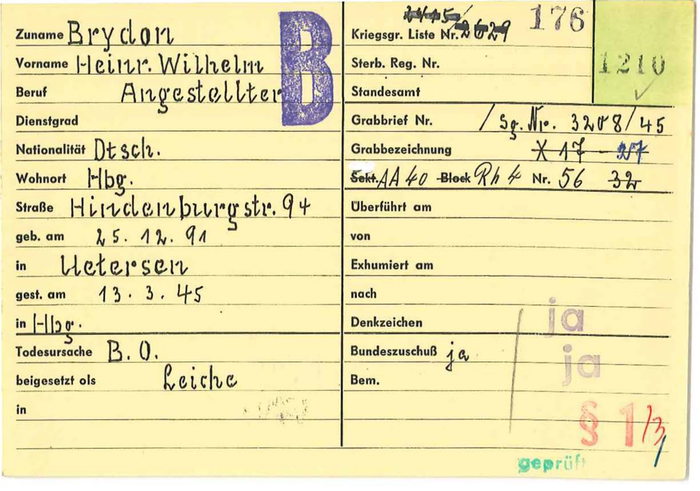 Zuname Brydon
Vorname Heinr. Wilhelm
Beruf Angestellter
Dienstgrad
Nationalität Dtsch.
Wohnort Hbg.
Straße Hindenburgstr. 94
geb. am 25.12.91
in Uetersen
gest. am 13.3.45
in Hbg.
Todesursache B.O.
beigesetzt als Leiche
in
B
176
Kriegsgr. Liste Nr. 2629
Sterb. Reg. Nr.
1210
Standesamt
Grabbrief Nr. / Sg. Nr. 3208/45
Grabbezeichnung X 17 - 27
Sekt. AA 40 Block Rh 4 Nr. 56 32
Überführt am
von
Exhumiert am
nach
Denkzeichen ja
Bundeszuschuß ja ja
Bem.
§ 1/3
geprüft